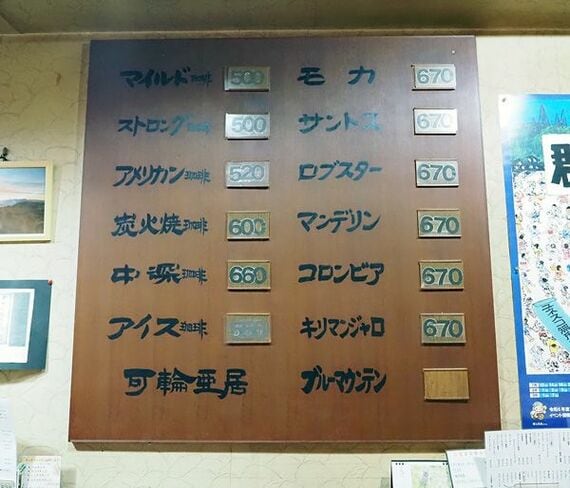 マイルド珈琲 500
ストロング珈琲 500
アメリカン珈琲 520
炭火焼珈琲 600
中深珈琲 660
アイス珈琲
可輪亜居
モカ 670
サントス 670
ロブスター 670
マンデリン 670
コロンビア 670
キリマンジャロ 670
ブルーマウンテン